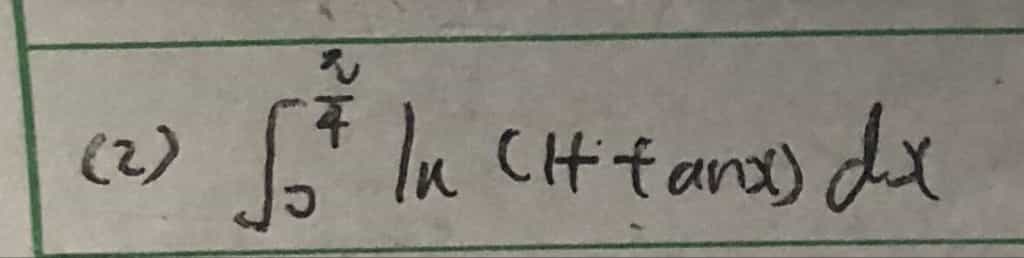 (2) ∫₀^{π/4} ln (1+tanx) dx